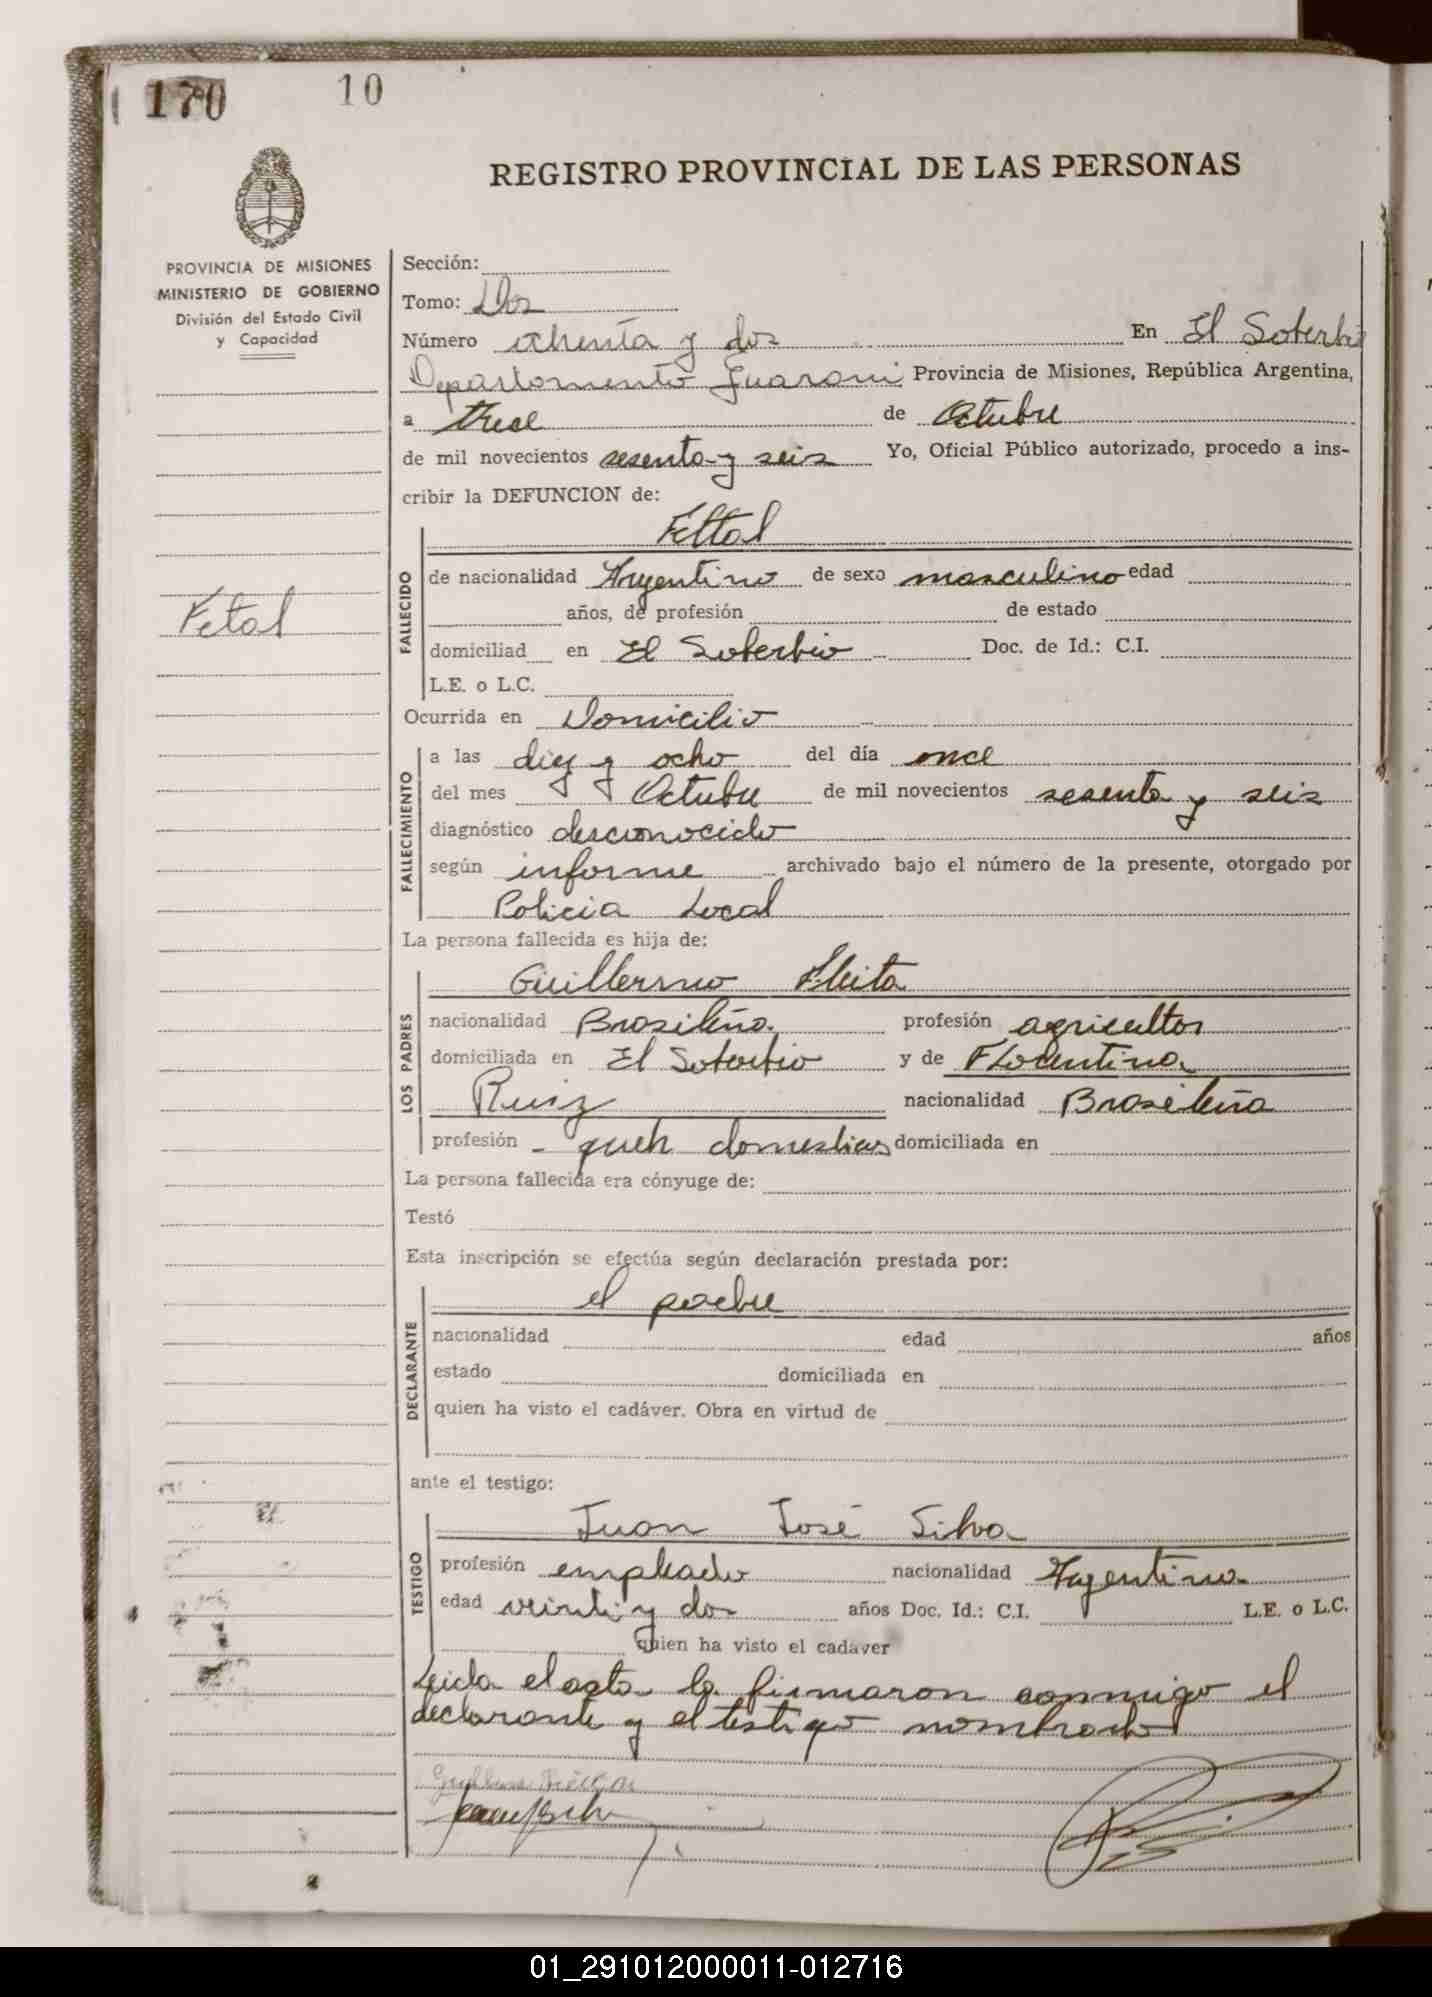 170
10
REGISTRO PROVINCIAL DE LAS PERSONAS
PROVINCIA DE MISIONES
MINISTERIO DE GOBIERNO
División del Estado Civil
y Capacidad
Fetal
Sección:
Tomo: Dos
Número ochenta y dos En El Soberbio
Departamento Guarani Provincia de Misiones, República Argentina,
a trece de Octubre
de mil novecientos sesenta y seis Yo, Oficial Público autorizado, procedo a ins-
cribir la DEFUNCION de:
Fettal
FALLECIDO
de nacionalidad Argentino de sexo masculino edad
años, de profesión de estado
domiciliad en El Soberbio Doc. de Id.: C.I.
L.E. o L.C.
Ocurrida en Domicilio
FALLECIMIENTO
a las diez y ocho del día once
del mes Octubre de mil novecientos sesenta y seis
diagnóstico desconocido
según informe archivado bajo el número de la presente, otorgado por
Policia Local
La persona fallecida es hija de:
LOS PADRES
Guillermo Fleita
nacionalidad Brasileño. profesión agricultor
domiciliada en El Soberbio y de Florentina
Ruiz nacionalidad Brasileña
profesión - queh domesticos domiciliada en
La persona fallecida era cónyuge de:
Testó
Esta inscripción se efectúa según declaración prestada por:
DECLARANTE
el padre
nacionalidad edad años
estado domiciliada en
quien ha visto el cadáver. Obra en virtud de
ante el testigo:
TESTIGO
Juan José Silva
profesión empleado nacionalidad Argentino
edad veinti y dos años Doc. Id.: C.I. L.E. o L.C.
quien ha visto el cadaver
Leida el acta la firmaron conmigo el
declarante y el testigo nombrado
01_291012000011-012716